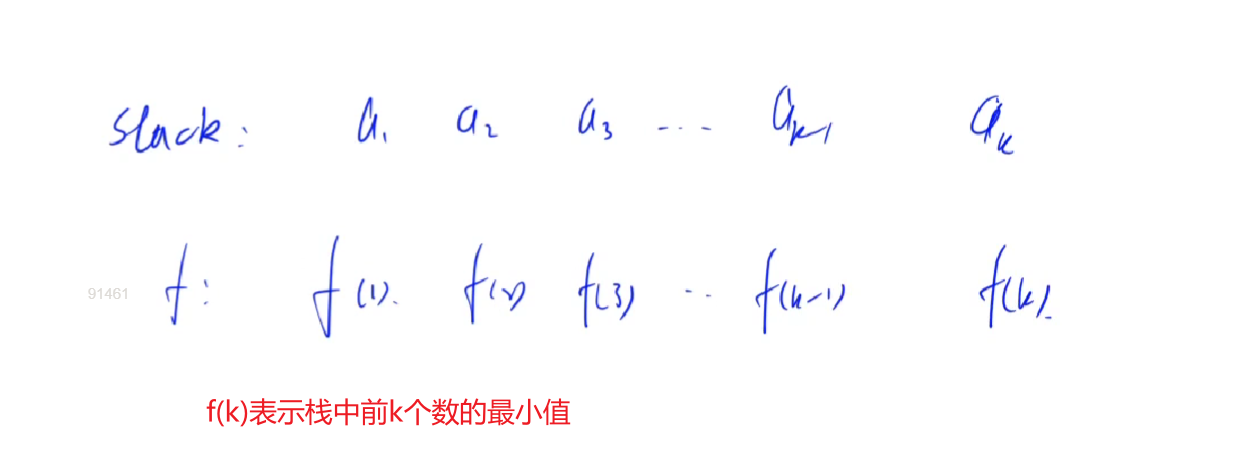 Stack: a₁ a₂ a₃ ... aₖ₋₁ aₖ
91461
f: f(1). f(2) f(3) ... f(k-1) f(k).
f(k)表示栈中前k个数的最小值